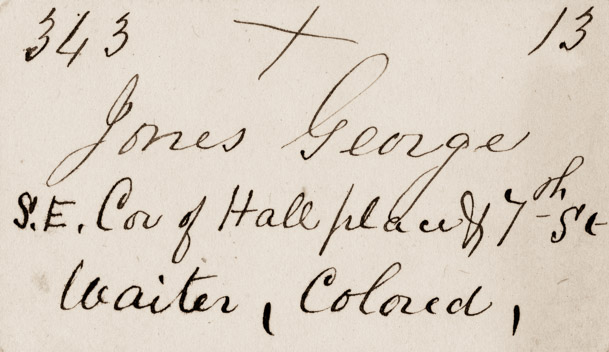 343 X 13
Jones George
S.E. Cor of Hall place & 7th St
Waiter, Colored,